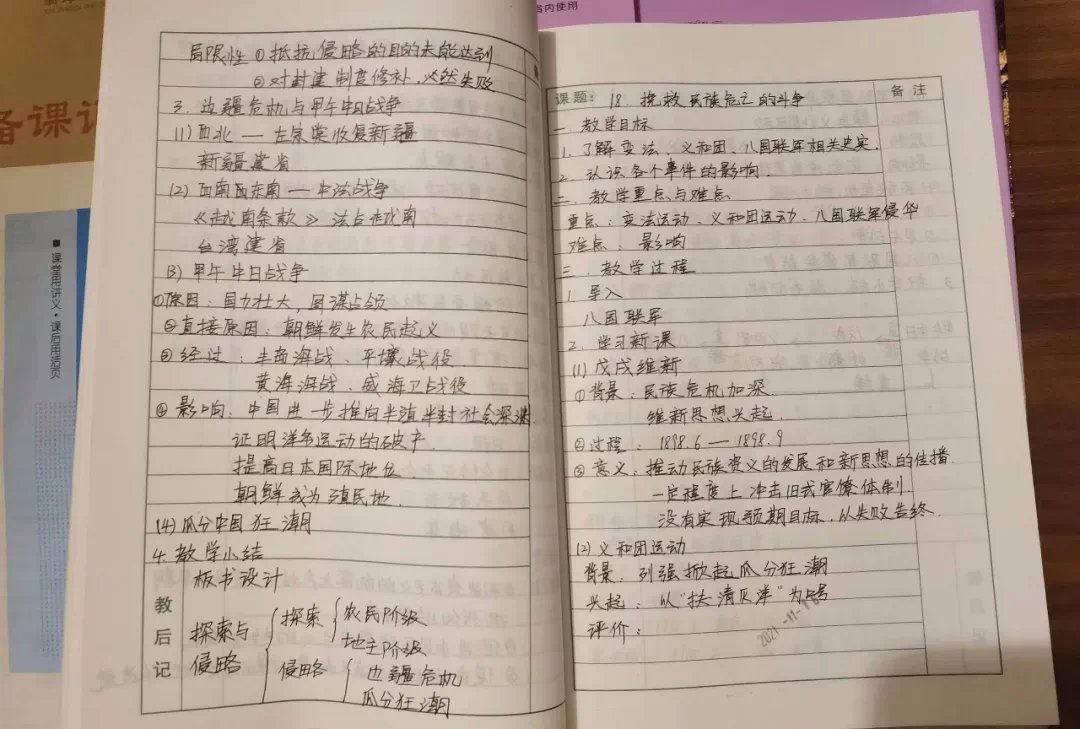 省内使用
备课
■课堂用讲义·课后用活页
局限性 ①抵抗侵略的目的未能达到
②对封建制度修补,必然失败
3. 边疆危机与甲午中日战争
(1)西北 — 左宗棠收复新疆
新疆建省
(2)西南及东南 — 中法战争
《越南条款》 法占越南
台湾建省
(3)甲午中日战争
①原因:国力壮大,图谋占领
②直接原因:朝鲜发生农民起义
③经过:丰岛海战、平壤战役
黄海海战、威海卫战役
④影响:中国进一步推向半殖半封社会深渊.
证明洋务运动的破产.
提高日本国际地位.
朝鲜成为殖民地.
(4)瓜分中国狂潮
4.教学小结
板书设计
教后记
探索与侵略
探索
农民阶级
地主阶级
侵略
边疆危机
瓜分狂潮
课题: 18. 挽救民族危亡的斗争
备注
一. 教学目标
1. 了解变法、义和团、八国联军相关史实.
2. 认识各个事件的影响.
二. 教学重点与难点
重点:变法运动、义和团运动.八国联军侵华
难点: 影响
三. 教学过程
1. 导入
八国联军
2. 学习新课
(1)戊戌维新
①背景:民族危机加深.
维新思想兴起.
②过程: 1898.6 — 1898.9
③意义:推动民族资义的发展和新思想的传播.
一定程度上冲击旧式官僚体制.
没有实现预期目标,以失败告终.
(2)义和团运动
背景:列强掀起瓜分狂潮
兴起: 以“扶清灭洋”为口号
评价: